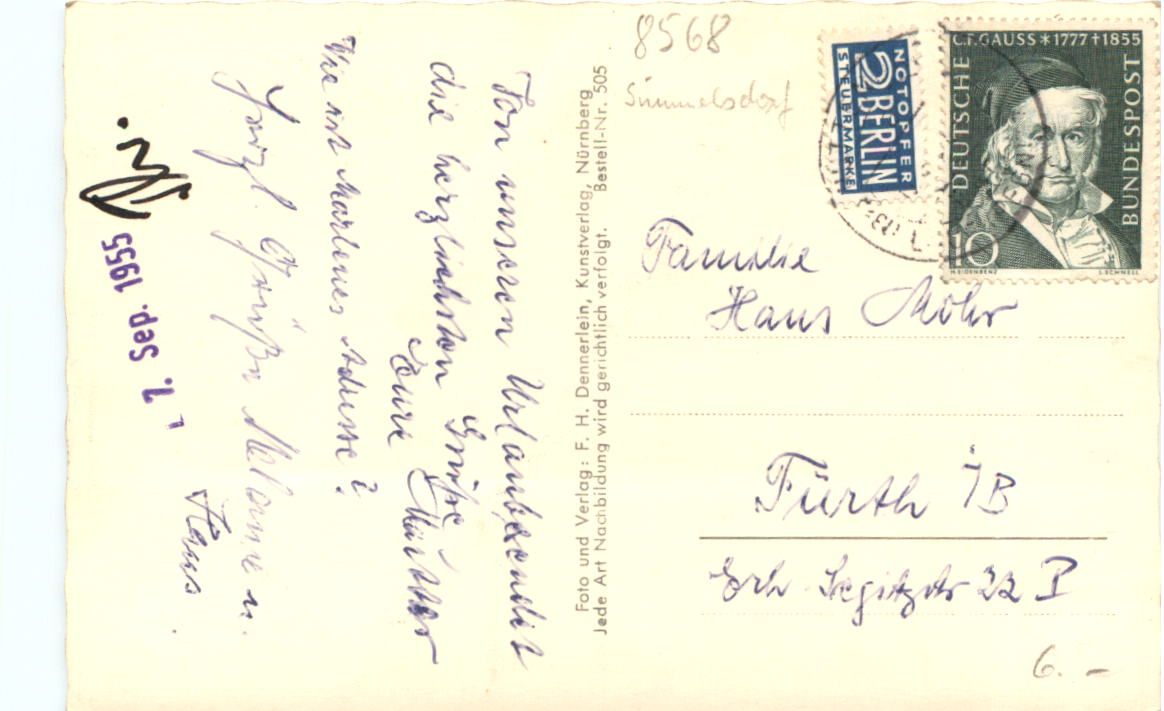 Von unseren Urlaubsendet
die herzlichsten Grüße
Eure Mutter
Wie ist Marlenes Adresse?
Herzl. Grüße Melanie u.
Hans
1. Sep. 1955
Foto und Verlag: F. H. Dennerlein, Kunstverlag, Nürnberg
Jede Art Nachbildung wird gerichtlich verfolgt. Bestell-Nr. 505
8568
Simmelsdorf
NOTOPFER
2 BERLIN
STEUERMARKE
C.F.GAUSS * 1777 † 1855
DEUTSCHE
BUNDESPOST
10
H.EIDENBENZ
L.SCHNELL
Familie
Hans Mohr
Fürth i/B
Erh. Segitzstr 22 I
6.–